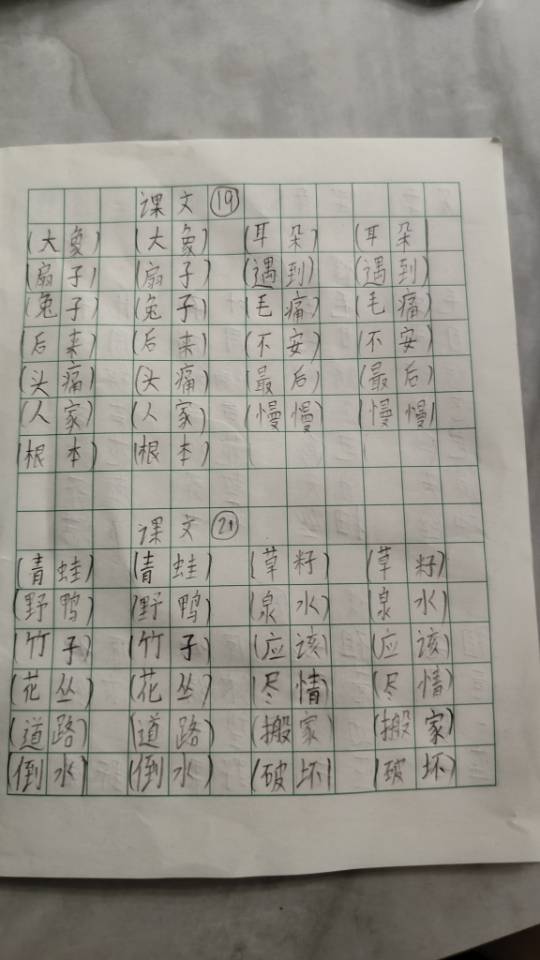 课文 ⑲
(大象) (大象) (耳朵) (耳朵)
(扇子) (扇子) (遇到) (遇到)
(兔子) (兔子) (毛痛) (毛痛)
(后来) (后来) (不安) (不安)
(头痛) (头痛) (最后) (最后)
(人家) (人家) (慢慢) (慢慢)
(根本) (根本)
课文 ㉑
(青蛙) (青蛙) (草籽) (草籽)
(野鸭) (野鸭) (泉水) (泉水)
(竹子) (竹子) (应该) (应该)
(花丛) (花丛) (尽情) (尽情)
(道路) (道路) (搬家) (搬家)
(倒水) (倒水) (破坏) (破坏)